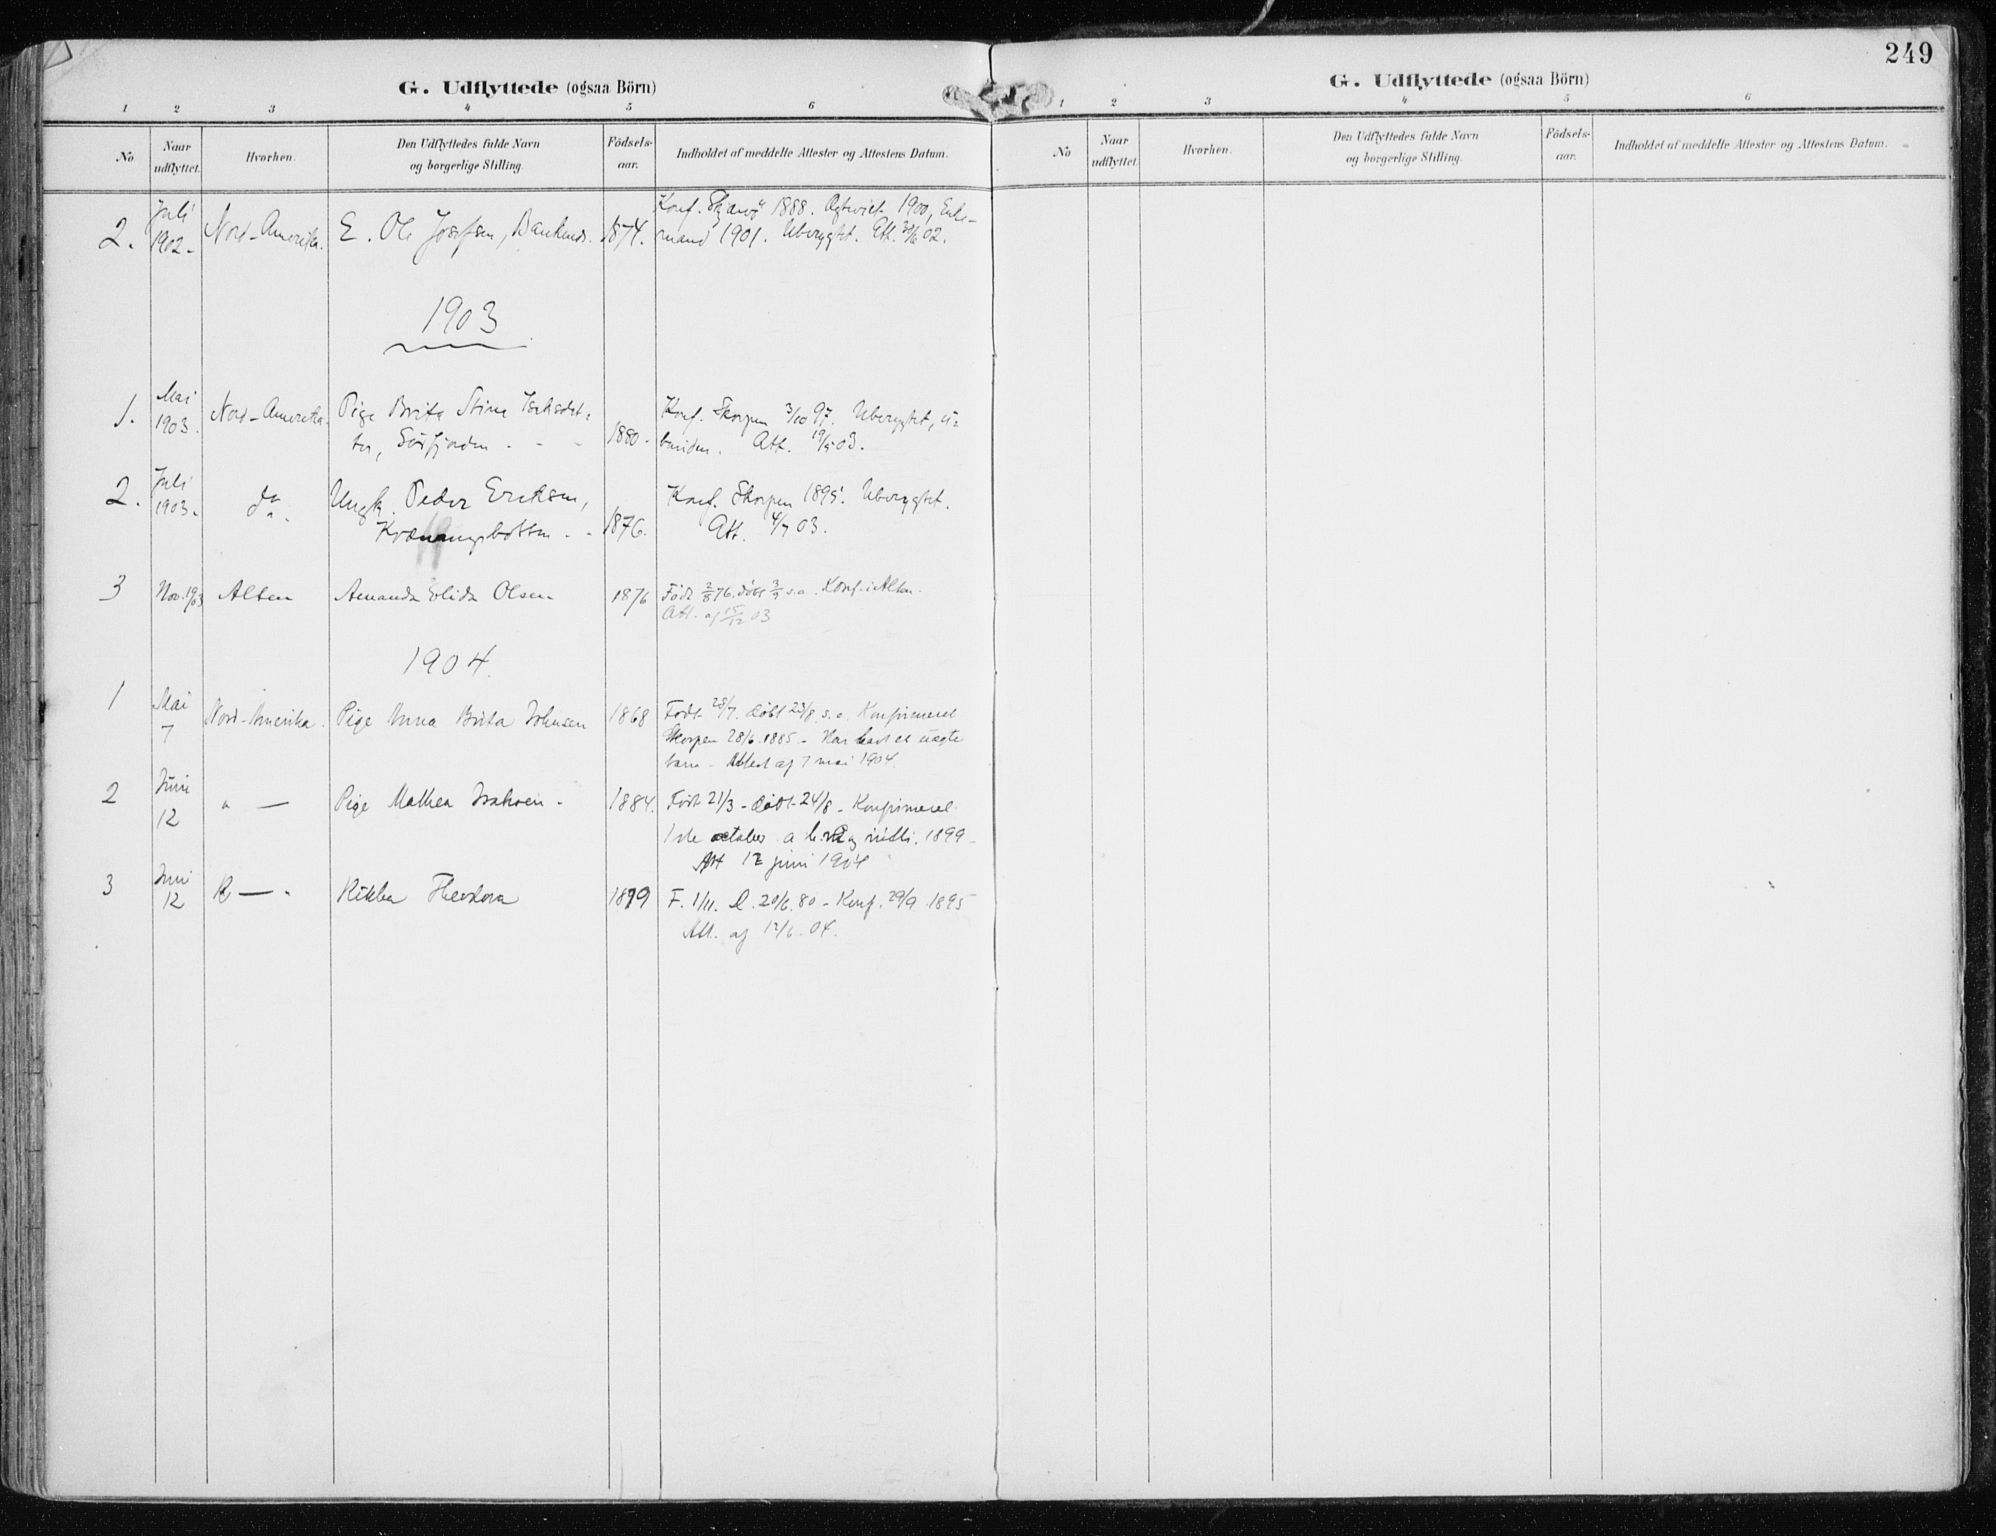 G. Udflyttede (ogsaa Börn)
1 2 3 4 5 6
No
Naar udflyttet.
Hvorhen.
Den Udflyttedes fulde Navn og borgerlige Stilling.
Födsels-aar.
Indholdet af meddelte Attester og Attestens Datum.
2. Juli 1902 - Nord-Amerika. E. Ole Josefsen, 1874. Konf. Skjærvö 1888. 1900, Enke-
mand 1901. Uberygtet. Att. 02.
1903
1. Mai 1903. Nord-Amerika. Pige Brita Stine
ter, Sörfjorden - - - 1880. Konf. Skorpen 3/10 97. Uberygtet, u-
bunden. Att. 19/5 03.
2. Juli 1903. do. Ungk. Peder Eriksen,
Kvænangsbotten - - 1876. Konf. Skorpen 1895. Uberygtet.
Att. 4/7 03.
3 Nov. 1903 Alten Amanda Elida Olsen 1876 Född 2/8 76. döbt 3/9 s.a. Konf. i Alten.
Att. af 15/12 03
1904.
1 Mai 7 Nord-Amerika. Pige Anna Brita Johnsen 1868 Födt 28/7. döbt 23/8 s.a. Konfirmeret
Skorpen 28/6 1885 - Har havt et uægte
barn - Attest af 7 mai 1904.
2 Juni 12 " — Pige Mathea Isaksen - 1884. Födt 21/3 - döbt 24/8 - Konfirmeret
1ste october 1899 -
Att 12 juni 1904
3 Juni 12 — " Rikka Theodora 1879 F. 1/11. D. 20/6. 80 - Konf. 29/9 1895
Att. af 12/6 - 04.
249
G. Udflyttede (ogsaa Börn)
1 2 3 4 5 6
No
Naar udflyttet.
Hvorhen.
Den Udflyttedes fulde Navn og borgerlige Stilling.
Födsels-aar.
Indholdet af meddelte Attester og Attestens Datum.